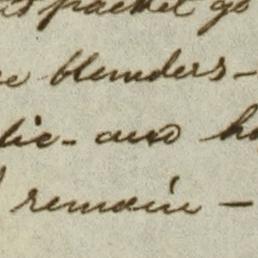 packet go
blunders-
lic- and
remain -